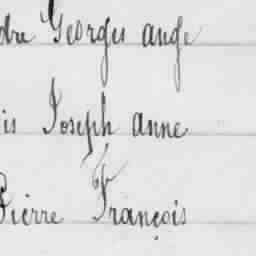 dre Georges ange
is Joseph anne
Pierre François